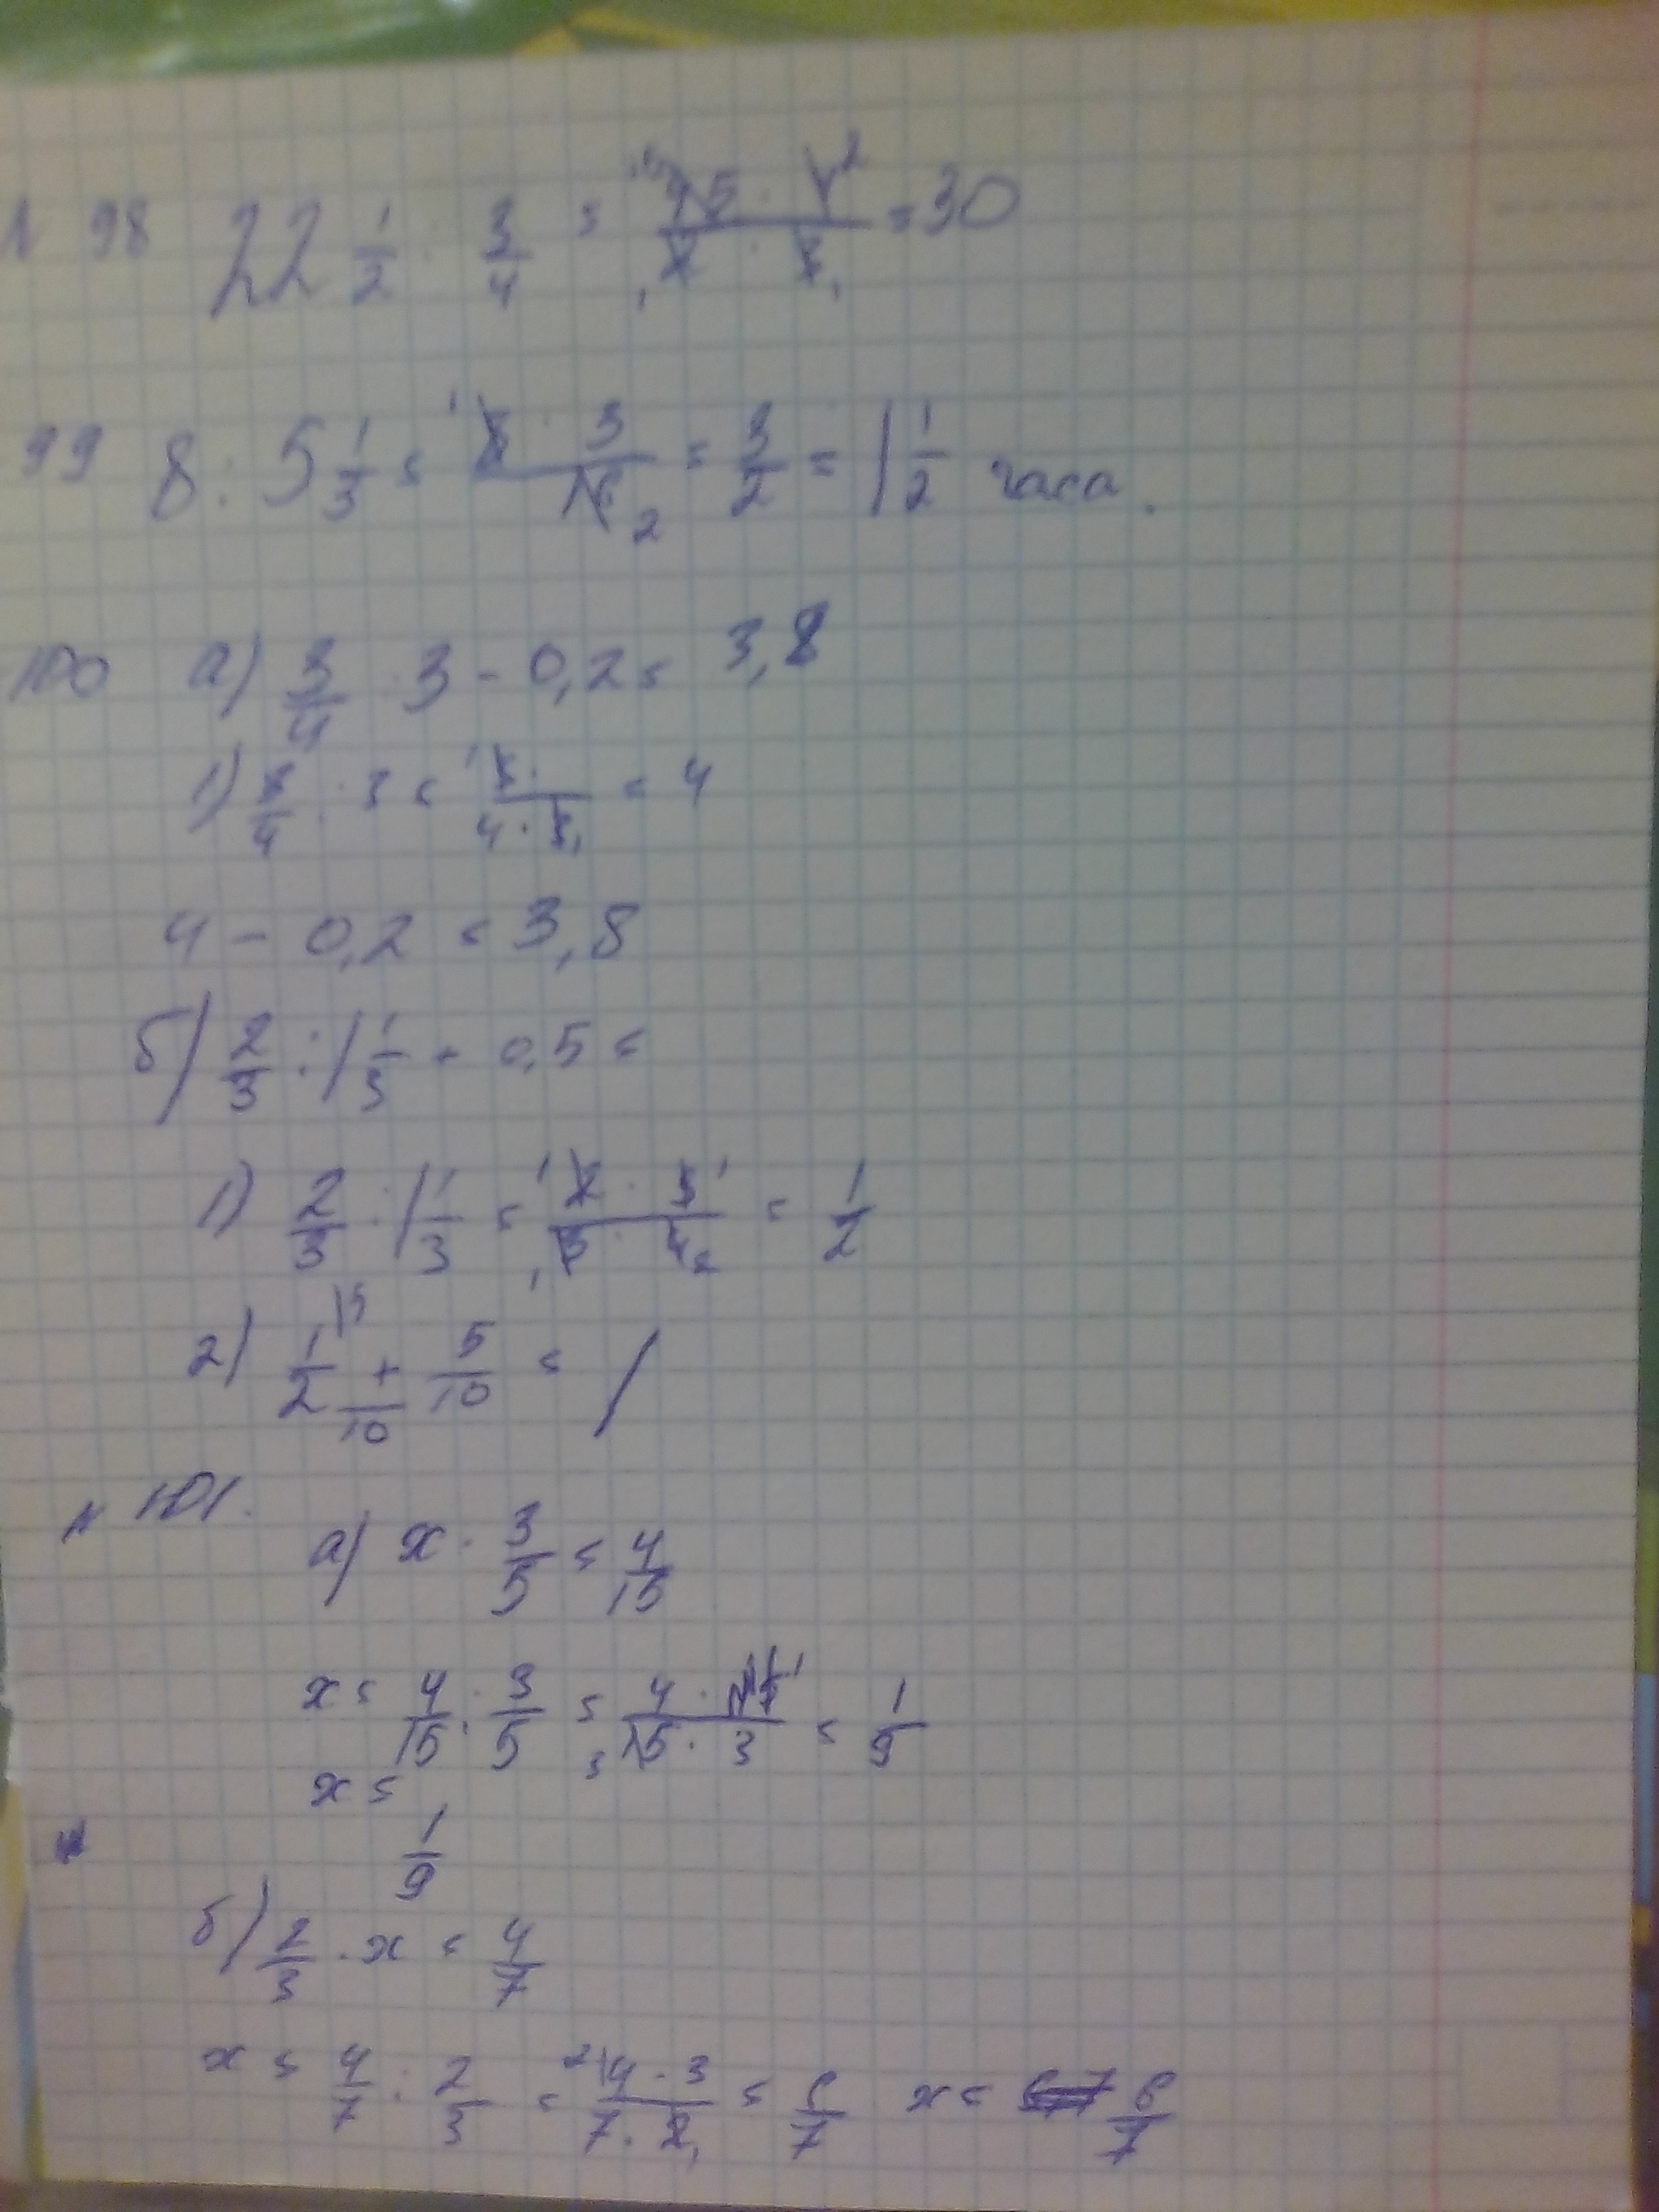 N 98 22 1/2 : 3/4 = 45 · 4 / 2 · 3 = 30
99 8 : 5 1/3 = 8 · 3 / 16 = 3/2 = 1 1/2 часа.
100 а) 3/4 : 3 - 0,2 = 3,8
1) 3/4 : 3 = 3 · / 4 · 3 = 4
4 - 0,2 = 3,8
б) 2/3 : 1 1/3 + 0,5 =
1) 2/3 : 1 1/3 = 2 · 3 / 3 · 4 = 1/2
2) 1/2 + 5/10 = 1
N 101.
а) x · 3/5 = 4/15
x = 4/15 : 3/5 = 4 · / 15 · 3 = 1/9
x =
1/9
б) 2/3 · x = 4/7
x = 4/7 : 2/3 = 4 · 3 / 7 · 2 = 6/7 x = 6/7